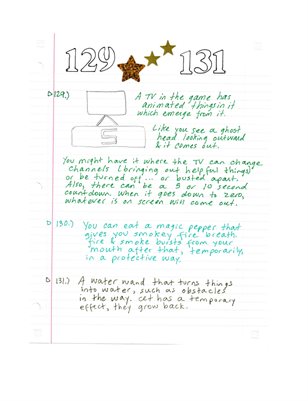 129 131
129.) A TV in the game has
animated things in it
which emerge from it.
Like you see a ghost
head looking outward
& it comes out.
5
You might have it where the TV can change
channels (bringing out helpful things)
or be turned off ... or busted apart.
Also, there can be a 5 or 10 second
countdown. When it goes down to zero,
whatever is on screen will come out.
130.) You can eat a magic pepper that
gives you smokey fire breath.
Fire & smoke bursts from your
mouth after that, temporarily,
in a protective way.
131.) A water wand that turns things
into water, such as obstacles
in the way. has a temporary
effect, they grow back.